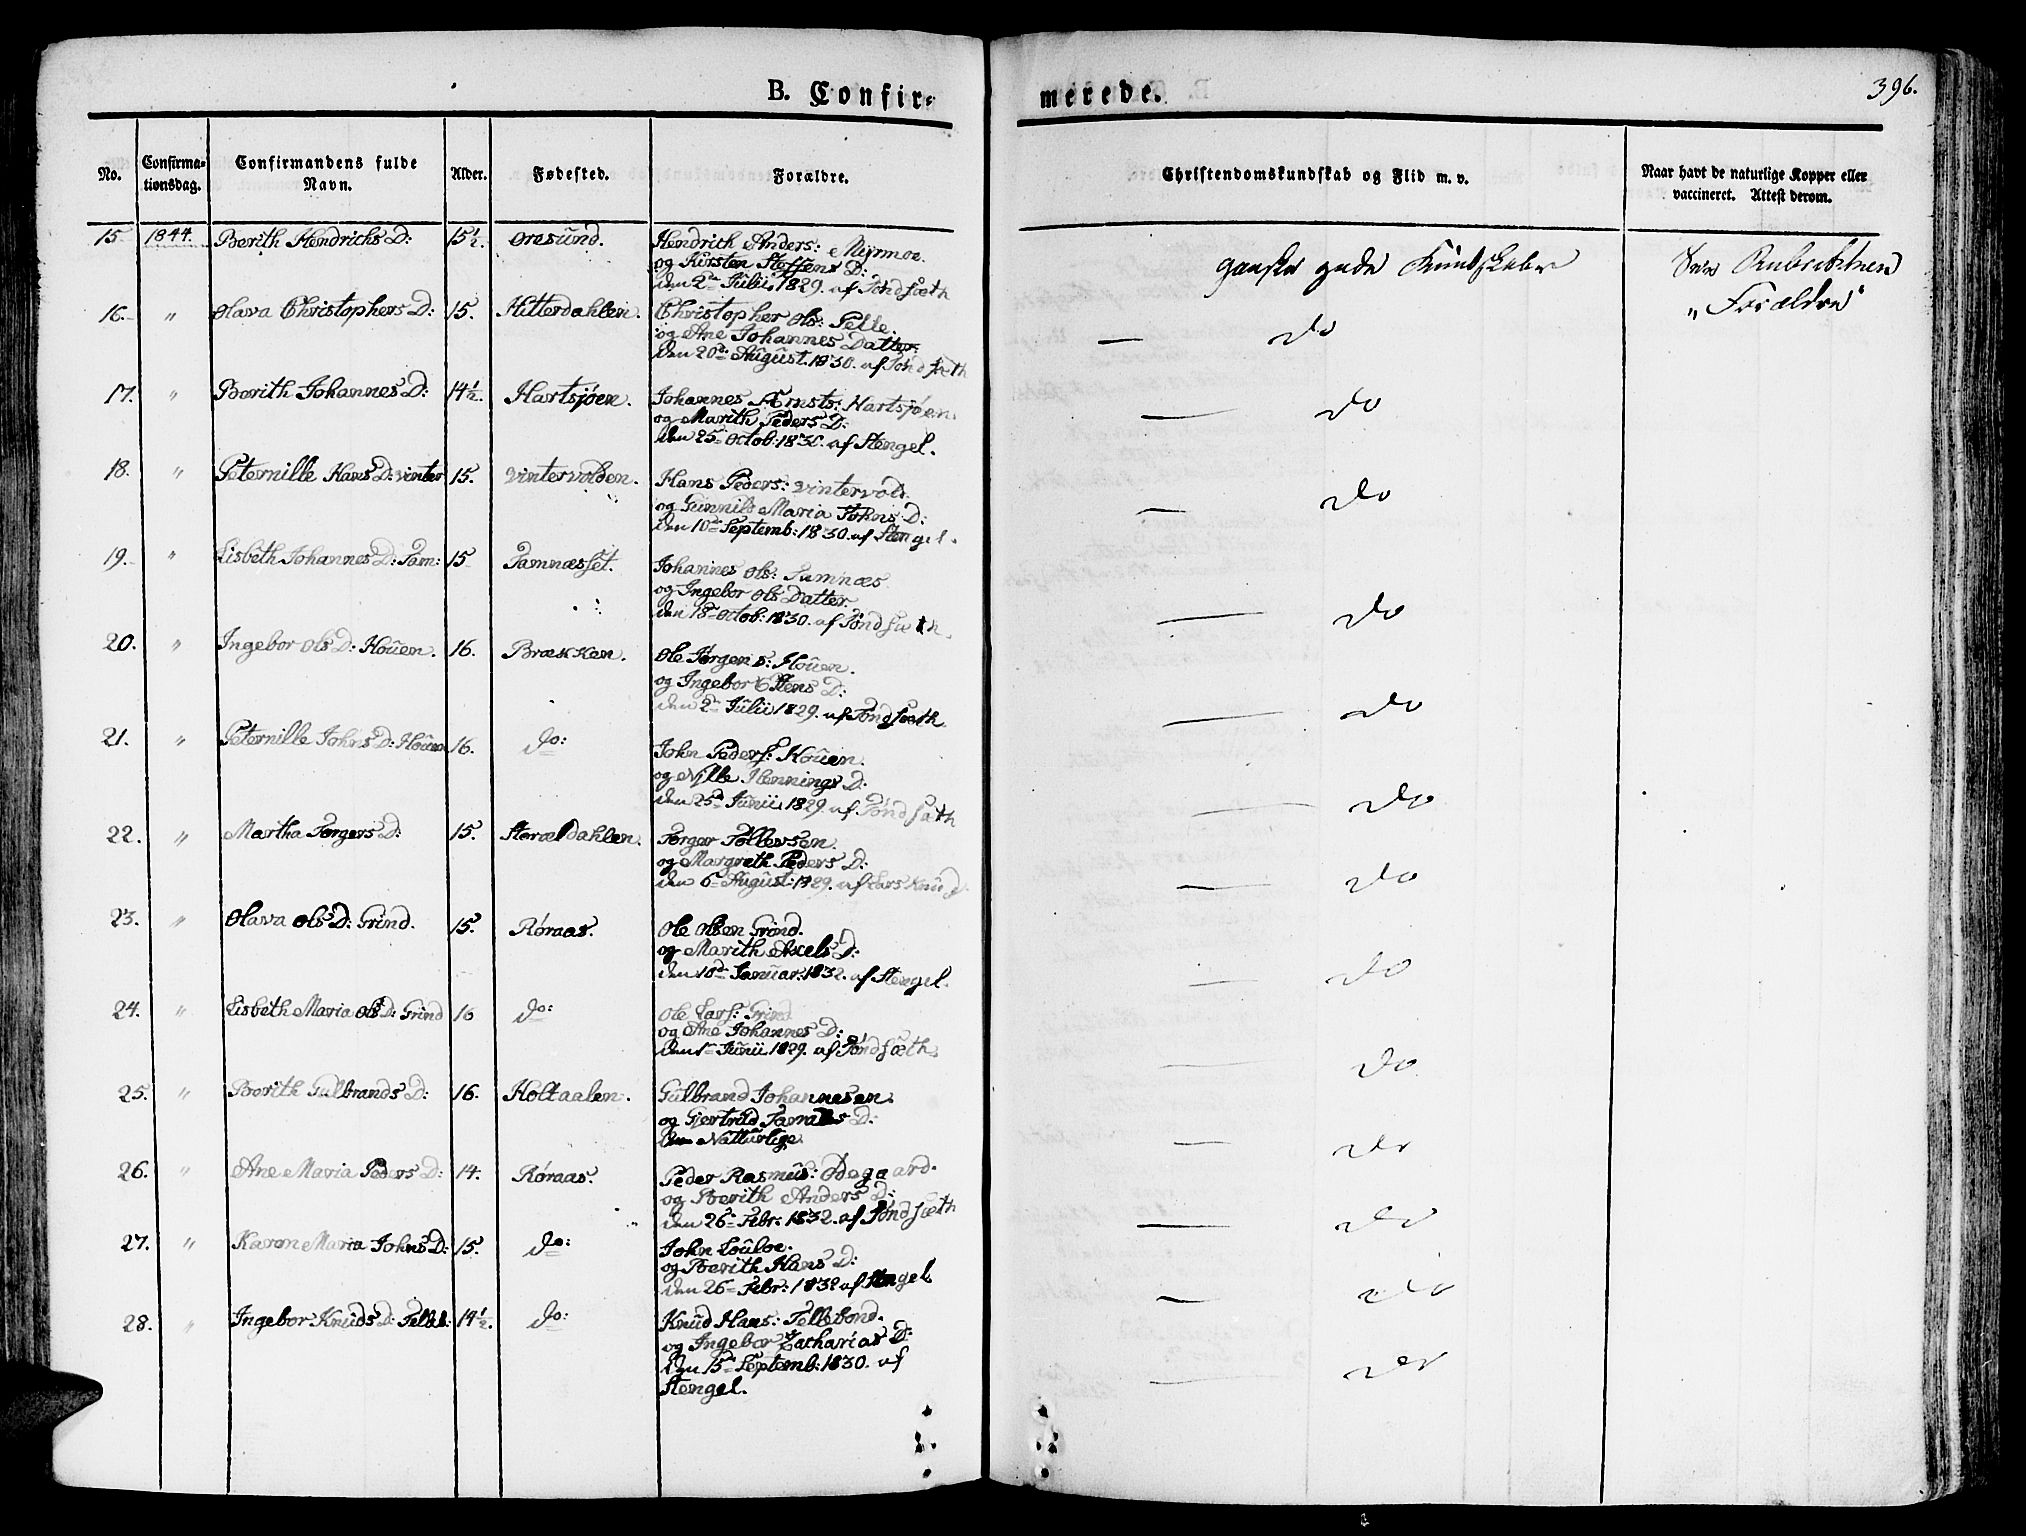 B. Confir-
merede.
396.
No.
Confirma-
tionsdag.
Confirmandens fulde
Navn.
Alder.
Fødested.
Forældre.
Christendomskundskab og Flid m. v.
Naar havt de naturlige Kopper eller
vaccineret. Attest derom.
15 1844. Berith Hendrichs D: 15½. Oresund. Hendrich Anders: Myrmoe.
og Kirsten Steffens D:
den 2den Julii 1829. af Tønd sæth
ganske gode Kundskaber
Rubrikken
„Forældre"
16. " Olava Christophers D: 15. Hitterdahlen. Christopher Ols: Pelle.
og Ane Johannes Datter
den 20de August. 1830. af Tønd sæth
— do
17. " Berith Johannes D: 14½. Hartsjøen. Johannes Ernsts: Hartsjøen.
og Marith Peders D:
den 25de Octob: 1830. af Stengel.
— do
18. " Peternille Hans D: vinter 15. Vintervolden. Hans Peders: Vintervold.
og Gunnild Maria Johns D:
den 10de Septemb: 1830. af Stengel.
— do
19. " Lisbeth Johannes D: Tam: 15 Tamnæsset. Johannes Ols: Tamnæs
og Ingebor Ols Datter.
den 18de Octob: 1830. af Tønd sæth.
— do
20. " Ingebor Ols D: Houen. 16. Brækken. Ole Jørgens: Houen.
og Ingebor Estens D:
den 2den Julii 1829. af Tønd sæth
— do
21. " Peternille Johns D: Houen 16. do: John Peders: Houen.
og Nille Hennings D:
den 25de Junii 1829. af Tønd sæth
— do
22. " Martha Torgers D: 15. Storældahlen. Torger Tollevsen.
og Margreth Peders D:
den 6te August: 1829. af Lars Knud
— do
23. " Olava Ols D: Grind. 15. Røraas. Ole Olsen Grind.
og Marith Axels D:
den 10de Januar: 1832. af Stengel.
— do
24. " Lisbeth Maria Ols D: Grind 16 do: Ole Lars: Grind
og Ane Johannes D:
den 1ste Junii 1829. af Tønd sæth.
— do
25. " Berith Gulbrands D: 16. Holtaalen. Gulbrand Johannesen.
og Gjertrud D:
den Natturlige
— do
26. " Ane Maria Peders D: 14. Røraas. Peder Rasmus: Ødegaard.
og Berith Anders D:
den 26de Febr: 1832. af Tønd sæth
— do
27. " Karen Maria Johns D: 15. do: John Louloe.
og Berith Hans D:
den 26de Febr: 1832 af Stengel
— do
28. " Ingebor Knuds D: Telleb: 14½. do: Knud Hans: Tellebond.
og Ingebor Zacharias D:
den 15de Septemb: 1830. af
Stengel.
— do